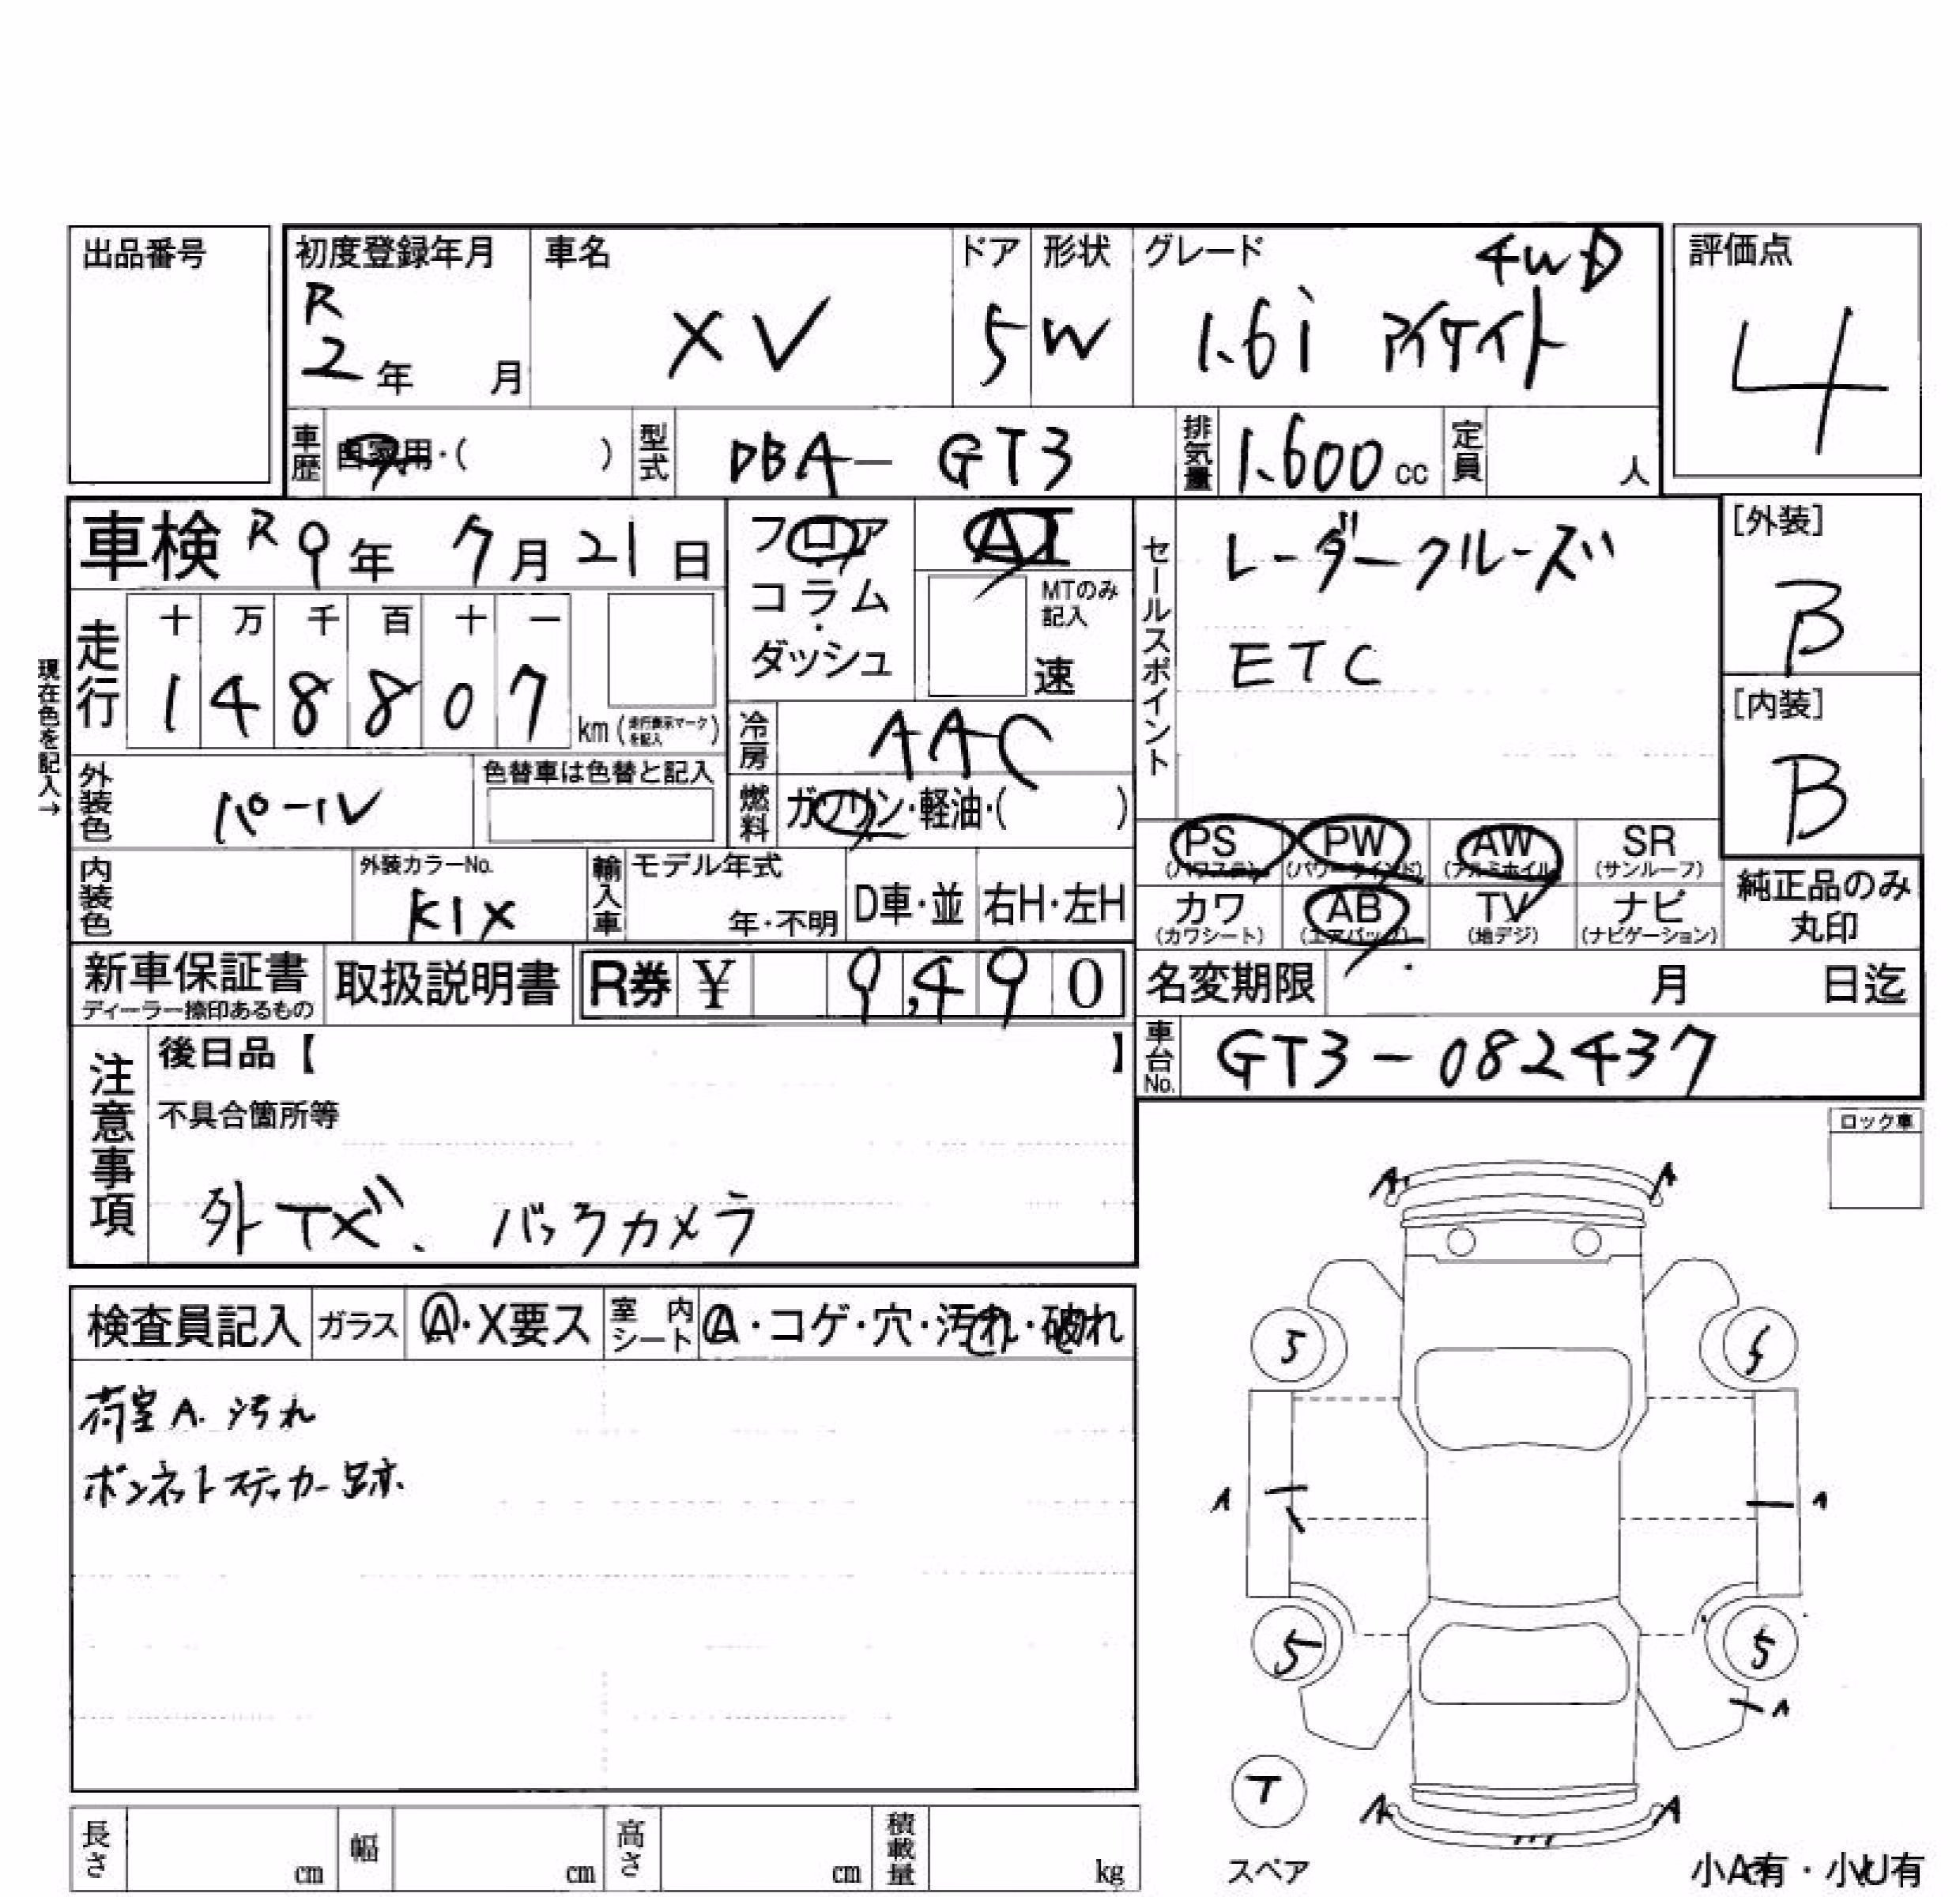 出品番号
初度登録年月
R
2年 月
車名
XV
ドア
5
形状
W
グレード
4WD
1.6i アイサイト
評価点
4
車歴
自家用・( )
型式
DBA-GT3
排気量
1.600cc
定員
人
車検 R9年 7月21日
フロア
コラム
・
ダッシュ
AT
MTのみ
記入
速
セールスポイント
レーダークルーズ
ETC
[外装]
B
[内装]
B
現在色を記入→
走行
十 万 千 百 十 一
1 4 8 8 0 7
km (走行表示マークを記入)
冷房
AAC
外装色
パール
色替車は色替と記入
燃料
ガソリン・軽油・( )
PS
(パワステ)
PW
(パワーウインド)
AW
(アルミホイル)
SR
(サンルーフ)
内装色
外装カラーNo.
K1X
輸入車
モデル年式
年・不明
D車・並
右H・左H
カワ
(カワシート)
AB
(エアバッグ)
TV
(地デジ)
ナビ
(ナビゲーション)
純正品のみ
丸印
新車保証書
ディーラー捺印あるもの
取扱説明書
R券 ¥ 9,490
名変期限 月 日迄
車台No.
GT3-082437
注意事項
後日品【 】
不具合箇所等
外Tナビ、バックカメラ
ロック車
検査員記入
ガラス
A・X要ス
室内シート
A・コゲ・穴・汚れ・破れ
荷室A.汚れ
ボンネットステッカー跡
A A
5 5
A A
5 5
A
T
A A
スペア
小A有・小U有
長さ cm
幅 cm
高さ cm
積載量 kg